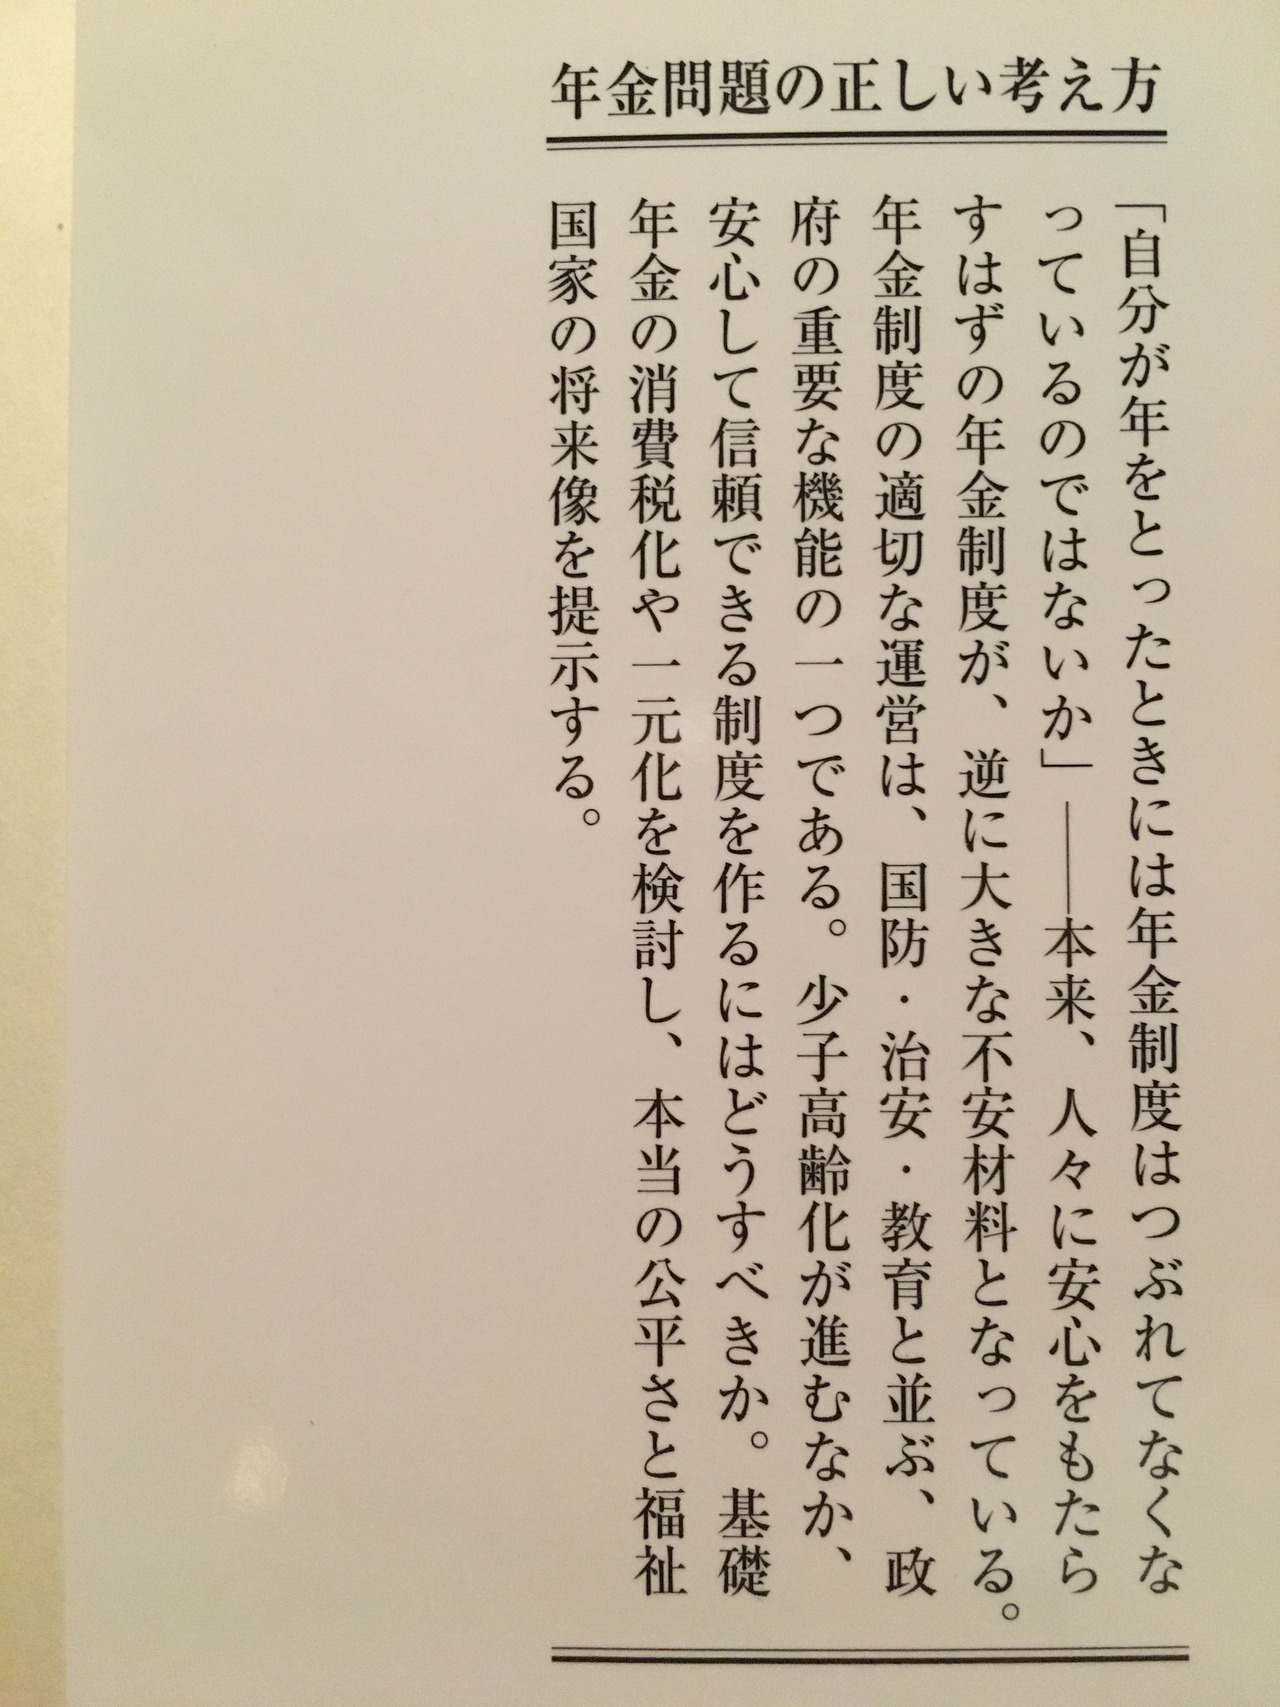 年金問題の正しい考え方
「自分が年をとったときには年金制度はつぶれてなくな
っているのではないか」――本来、人々に安心をもたら
すはずの年金制度が、逆に大きな不安材料となっている。
年金制度の適切な運営は、国防・治安・教育と並ぶ、政
府の重要な機能の一つである。少子高齢化が進むなか、
安心して信頼できる制度を作るにはどうすべきか。基礎
年金の消費税化や一元化を検討し、本当の公平さと福祉
国家の将来像を提示する。